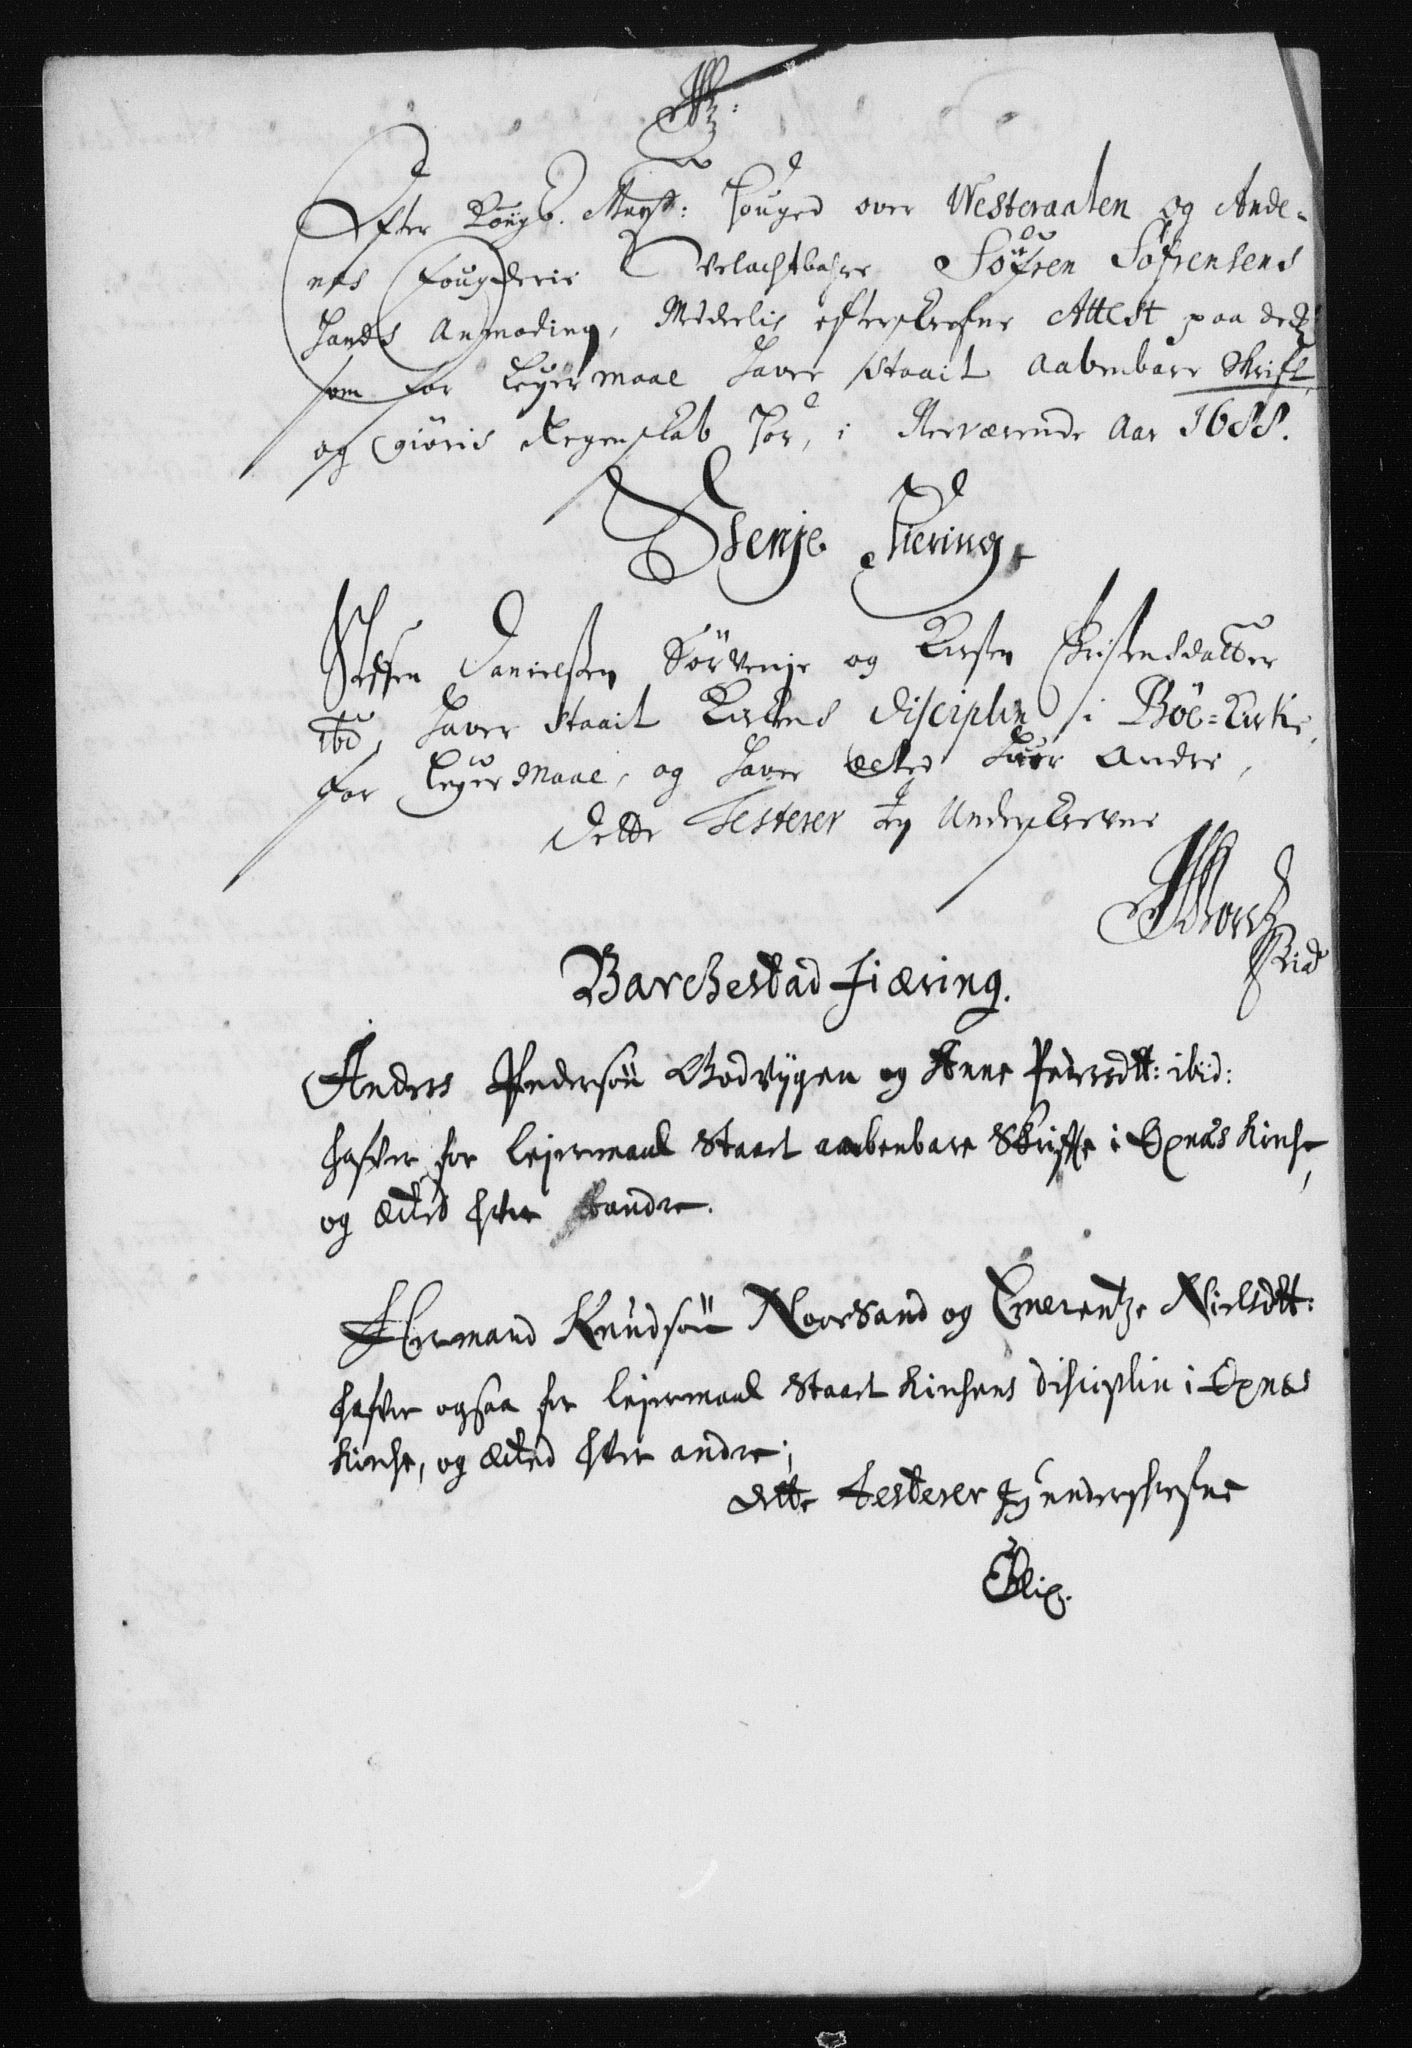 Efter Kongl. Mayst: Fouged over Westeraalen og Ande-
nes Fougderie Velachtbahre Søfren Søfrensens
hands Anmoding, Meddelis efterskrefne Attest paa dend
som for Leyermaal haver staait aabenbare Skrift,
og giøris Regenskab for, i Nerværende Aar 1688.
Skenje Fiering,
Steffen Danielsen Sørvenje og Kirsten Christensdatter
ibd, haver staait Kirkens Disciplin i Böe-Kirke,
for Leyermaal, og haver ected huer Andre,
Dette Testerer Jeg Underskrevne
Barchestad Fiæring.
Anders Pedersøn Godvijgen og Anne Pedersdtt: ibid:
hafver for lejermaal staaet aabenbare Skriffte i Øxnæs Kirche,
og ected hver andre.
Hermand Knudsøn Noorsand og Emerentze Nielsdtt:
hafver ogsaa for lejermaal staaet Kirchens disciplin i Øxnæs
Kirche, og ected hver andre;
dette testerer Jeg underskrefne
EBlix.